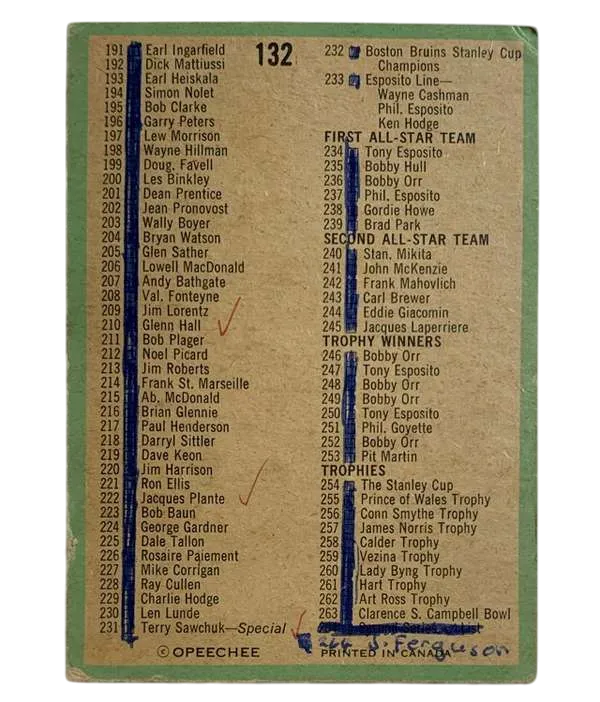 132
191 Earl Ingarfield
192 Dick Mattiussi
193 Earl Heiskala
194 Simon Nolet
195 Bob Clarke
196 Garry Peters
197 Lew Morrison
198 Wayne Hillman
199 Doug. Favell
200 Les Binkley
201 Dean Prentice
202 Jean Pronovost
203 Wally Boyer
204 Bryan Watson
205 Glen Sather
206 Lowell MacDonald
207 Andy Bathgate
208 Val. Fonteyne
209 Jim Lorentz
210 Glenn Hall
211 Bob Plager
212 Noel Picard
213 Jim Roberts
214 Frank St. Marseille
215 Ab. McDonald
216 Brian Glennie
217 Paul Henderson
218 Darryl Sittler
219 Dave Keon
220 Jim Harrison
221 Ron Ellis
222 Jacques Plante
223 Bob Baun
224 George Gardner
225 Dale Tallon
226 Rosaire Paiement
227 Mike Corrigan
228 Ray Cullen
229 Charlie Hodge
230 Len Lunde
231 Terry Sawchuk—Special
232 Boston Bruins Stanley Cup
Champions
233 Esposito Line—
Wayne Cashman
Phil. Esposito
Ken Hodge
FIRST ALL-STAR TEAM
234 Tony Esposito
235 Bobby Hull
236 Bobby Orr
237 Phil. Esposito
238 Gordie Howe
239 Brad Park
SECOND ALL-STAR TEAM
240 Stan. Mikita
241 John McKenzie
242 Frank Mahovlich
243 Carl Brewer
244 Eddie Giacomin
245 Jacques Laperriere
TROPHY WINNERS
246 Bobby Orr
247 Tony Esposito
248 Bobby Orr
249 Bobby Orr
250 Tony Esposito
251 Phil. Goyette
252 Bobby Orr
253 Pit Martin
TROPHIES
254 The Stanley Cup
255 Prince of Wales Trophy
256 Conn Smythe Trophy
257 James Norris Trophy
258 Calder Trophy
259 Vezina Trophy
260 Lady Byng Trophy
261 Hart Trophy
262 Art Ross Trophy
263 Clarence S. Campbell Bowl
264 J. Ferguson
© OPEECHEE
PRINTED IN CANADA